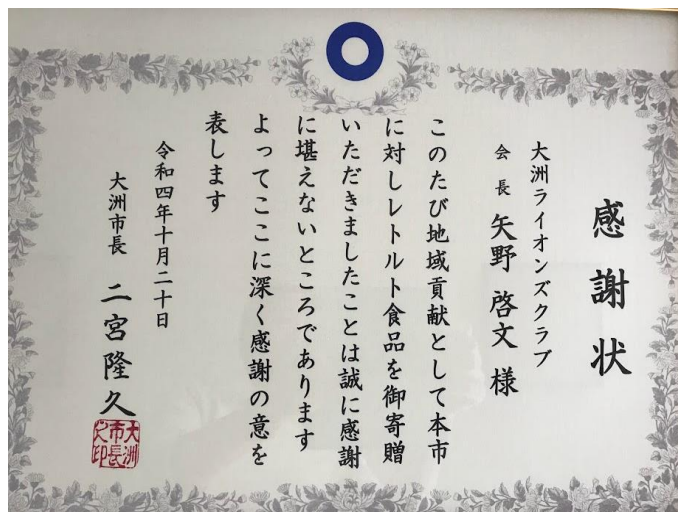 感謝状
大洲ライオンズクラブ
会長 矢野 啓文 様
このたび地域貢献として本市
に対しレトルト食品を御寄贈
いただきましたことは誠に感謝
に堪えないところであります
よってここに深く感謝の意を
表します
令和四年十月二十日
大洲市長 二宮隆久
大洲
市長
之印